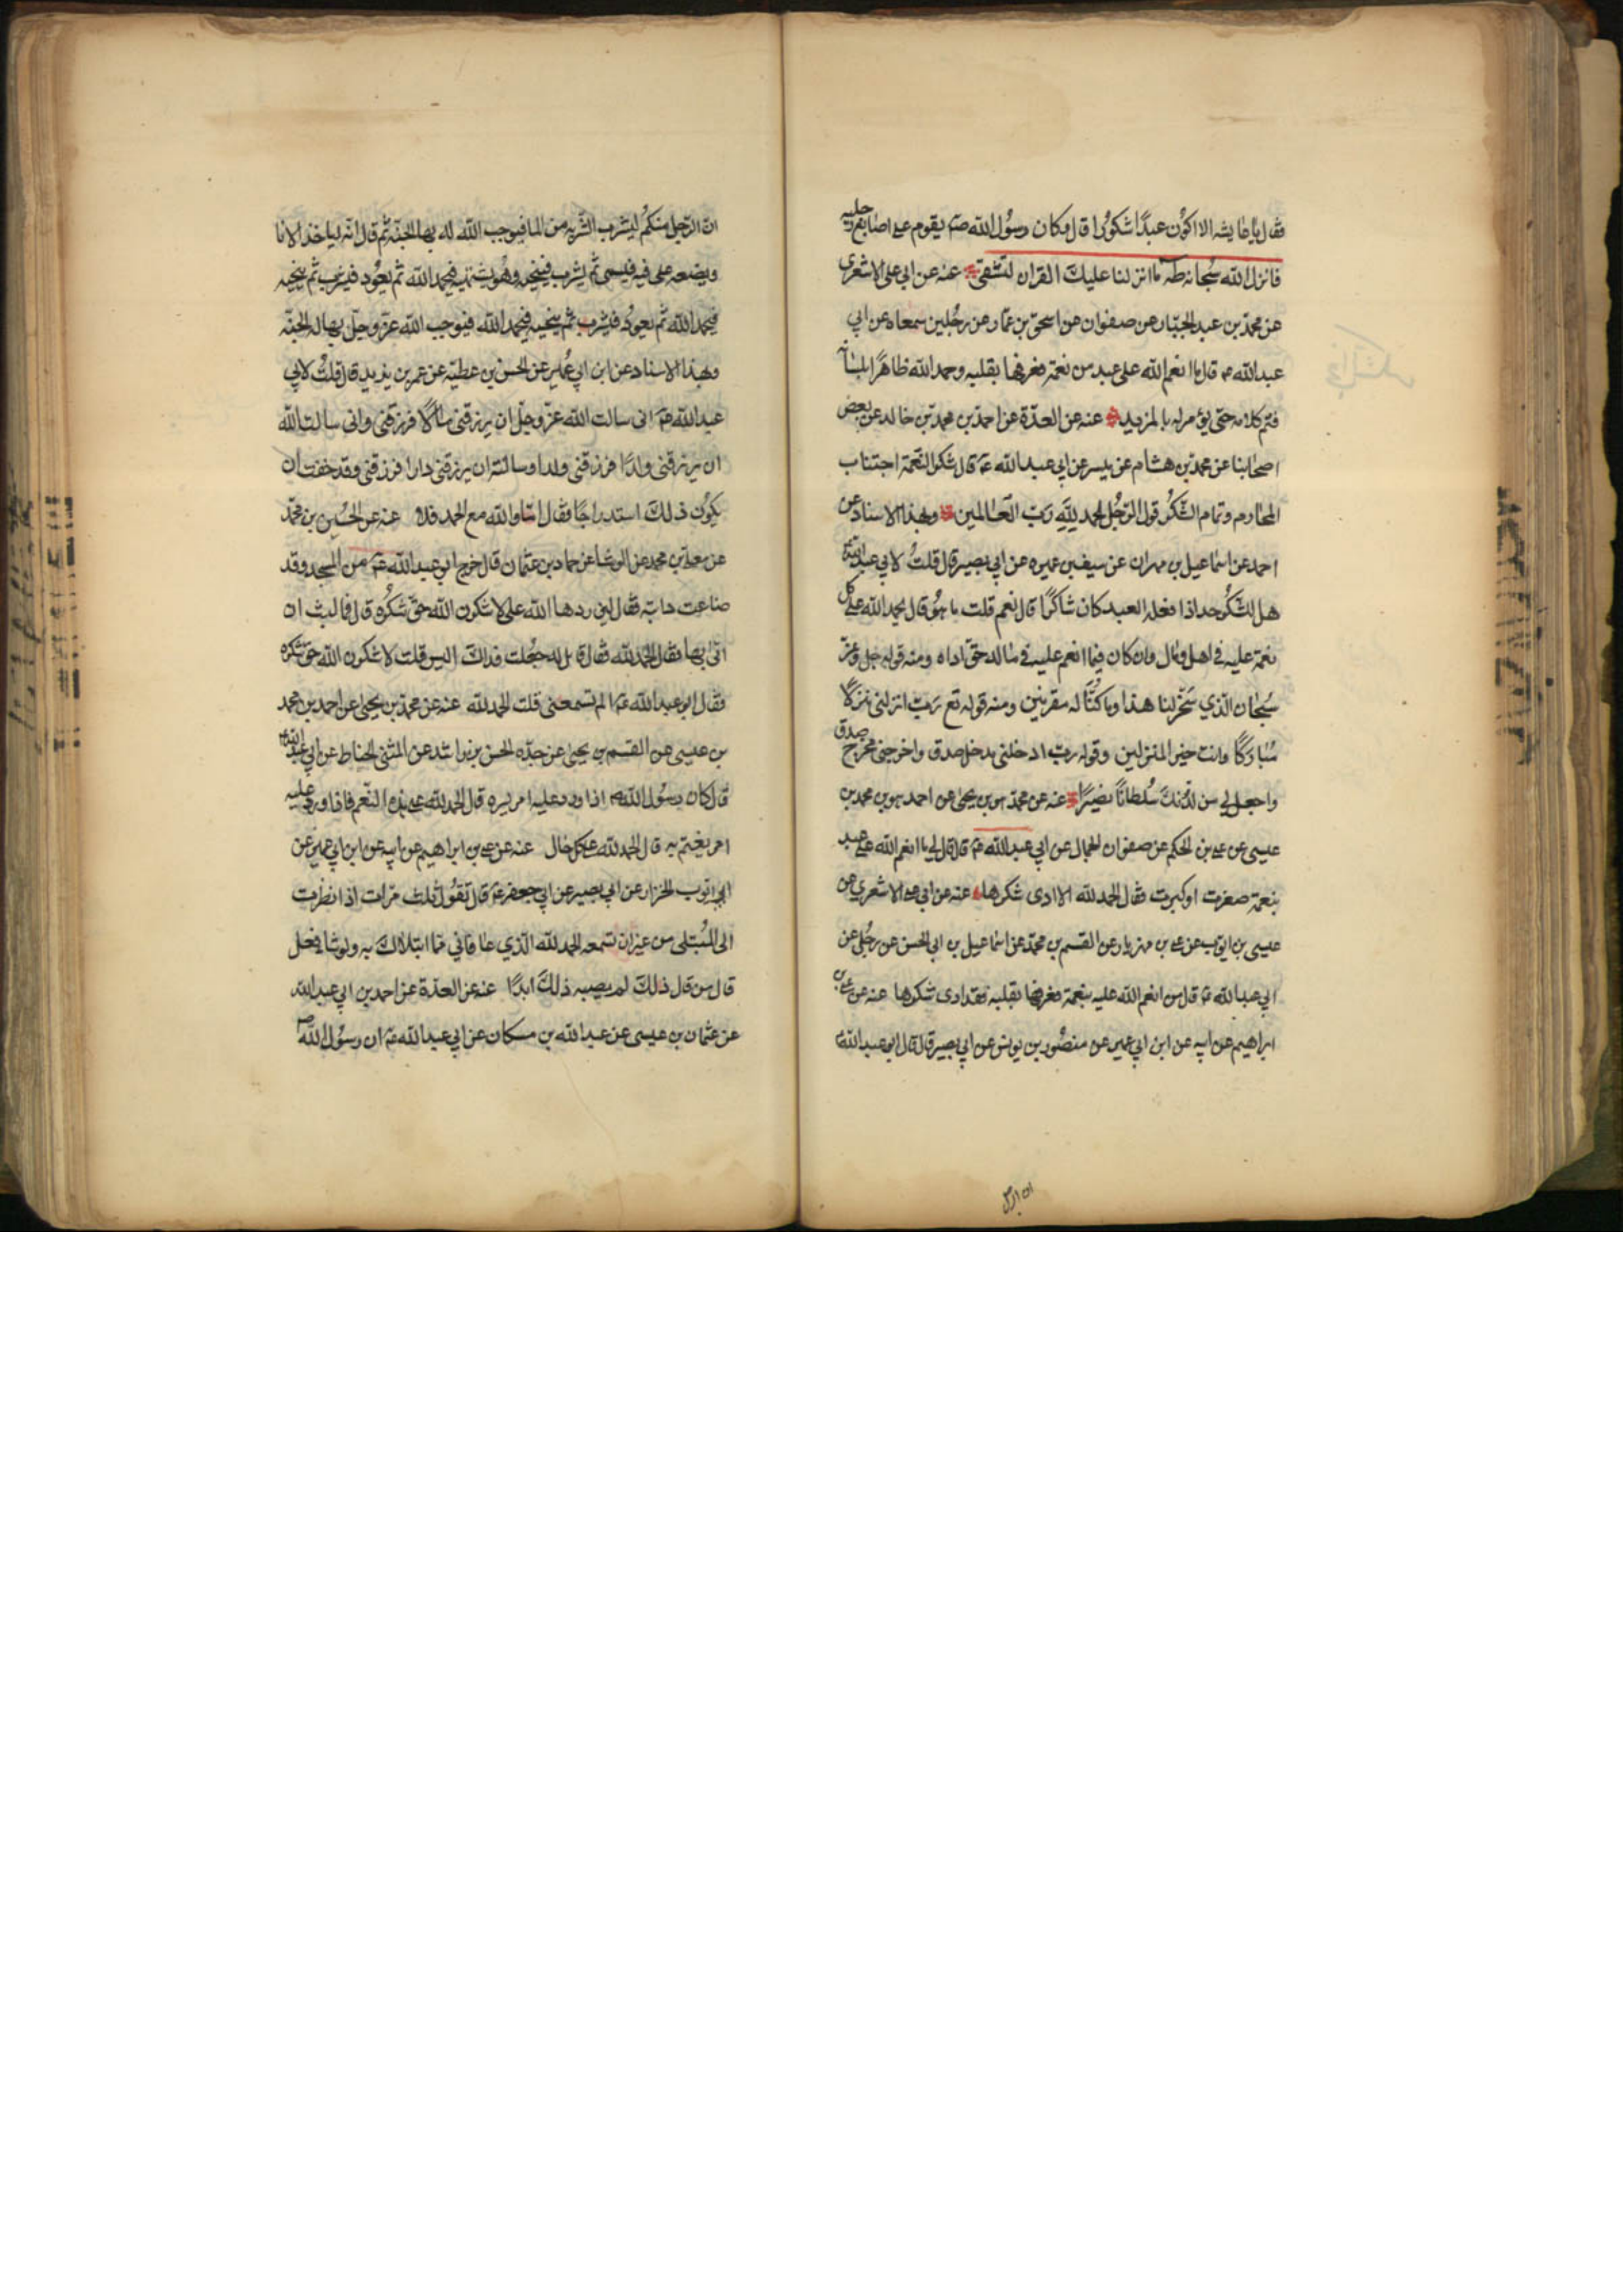 فقال يا عايشه الا اكون عبدًا شكورًا قال وكان رسُول الله صم يقوم على اصابع رجليه
فانزل الله سُبحانه طه ما انزلنا عليك القران لتشقى عنه عن ابي على الاشعري
عن محمد بن عبد الجبّار عن صفوان عن اسحق بن عمّار عن رجُلين سمعاه عن ابي
عبد الله ع قال ما انعم الله على عبد من نعمة فعرفها بقلبه وحمد الله ظاهرًا بلسانه
فتم كلامه حتى يؤمر له بالمزيد عنه عن العدّة عن احمد بن محمد بن خالد عن بعض
اصحابنا عن محمد بن هشام عن ميسر عن ابي عبد الله ع قال شكر النعمة اجتناب
المحارم وتمام الشكر قول الرّجُل الحمد للّهِ رَبّ العَالمين وبهذا الاسناد عن
احمد عن اسماعيل بن مهران عن سيف بن عميره عن ابي بصير قال قلتُ لابي عبد الله
هل للشكر حد اذا فعله العبد كان شاكرًا قال نعم قلت ما هُو قال يحمد الله على كل
نعمة عليه في اهل ومال وان كان فيما انعم عليه في ماله حق اداه ومنه قوله جل وعز
سُبحان الّذي سَخّر لنا هذا وما كنّا له مقرنين ومنه قوله تع رَبّ انزلنى منزلًا
مُبَاركًا وانت خير المنزلين وقوله ربّ ادخلنى مدخل صدق واخرجنى مخرج صدق
واجعل لي من لدُنكَ سُلطانًا نصيرًا عنه عن محمد بن يحيى عن احمد بن محمد بن
عيسى عن على بن الحكم عن صفوان الجمال عن ابي عبد الله ع قال قال لي ما انعم الله على عبد
بنعمة صغرت او كبرت فقال الحمد لله الا ادى شكرها عنه عن ابي على الاشعري عن
عيسى بن ايوب عن على بن مهزيار عن القسم بن محمد عن اسماعيل بن ابى الحسن عن رجُل عن
ابي عبد الله ع قال من انعم الله عليه بنعمة فعرفها بقلبه فقد ادى شكرها عنه عن على بن
ابراهيم عن ابيه عن ابن ابي عمير عن منصُور بن يونس عن ابي بصير قال قال ابو عبد الله
ان الرجل
انّ الرّجل منكُم ليشرب الشّربه من الما فيوجب الله له بها الجنّه ثم قال انّه لياخذ الانا
ويضعه على فيه فيسمى ثُم يشرب فينحيه وهُو يشتهيه فيحمد الله ثم يعُود فيشرب ثم ينحيه
فيحمد الله ثم يعودُ فيشرب ثم ينحيه فيحمد الله فيوجب الله عزّ وجلّ بها له الجنّه
وبهذا الاسناد عن ابن ابي عُمير عن الحسن بن عطيّه عن عمر بن يزيد قال قلتُ لابي
عبد الله ع انى سالت الله عزّ وجلّ ان يرزقنى مالًا فرزقنى وانى سالت الله
ان يرزقنى ولدًا فرزقنى ولدا وسالته ان يرزقنى دارا فرزقنى وقد خفت ان
يكُون ذلكَ استدراجًا فقال امّا والله مع الحمد فلا عنه عن الحُسين بن محمّد
عن معلى بن محمد عن الوشا عن حماد بن عثمان قال خرج ابو عبد الله ع من المسجد وقد
ضاعت دابته فقال لين ردها الله على لاشكرن الله حقّ شكُره قال فما لبث ان
اتى بها فقال الحمد لله فقال قايل له جعُلت فداك اليس قلت لاشكرن الله حق شكره
فقال ابو عبد الله ع ا لم تسمعنى قلت الحمد لله عنه عن محمد بن يحيى عن احمد بن محمد
بن عيسى عن القسم بن يحيى عن جدّه الحسن بن راشد عن المثنى الحناط عن ابي عبد الله
قال كان رسُول الله ص اذا ورد عليه امر يسره قال الحمد لله على هذه النّعمه فاذا ورد عليه
امر يغتم به قال الحمد لله على كل حال عنه عن على بن ابراهيم عن ابيه عن ابن ابي عمير عن
ابي ايوب الخزاز عن ابي بصير عن ابي جعفر ع قال تقُول ثلث مرّات اذا نظرت
الى المُبتلى من غير ان تسمعه الحمد لله الّذي عافاني ممّا ابتلاك به ولو شا فعل
قال من قال ذلكَ لم يصيبه ذلكَ ابدًا عنه عن العدّة عن احمد بن ابي عبد الله
عن عثمان بن عيسى عن عبد الله بن مسكان عن ابي عبد الله ع ان رسُول الله ص